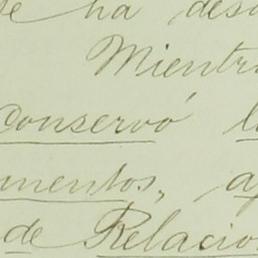 e ha desc
Mientr
conservó l
mentos, a
de Relacio